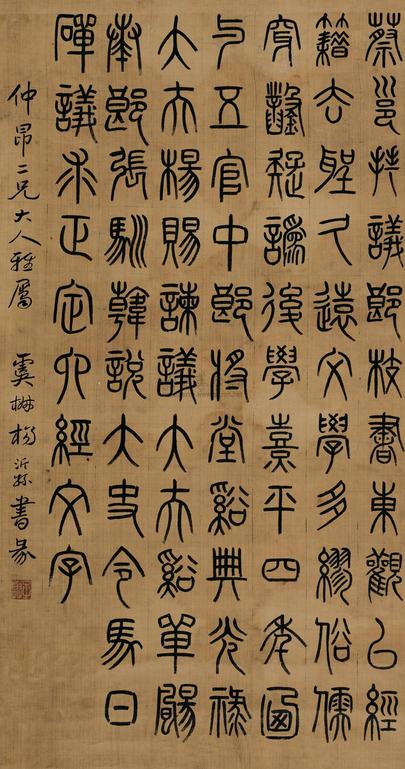 蔡邕拜議郎校書東觀以經
籍去聖久遠文學多繆俗儒
穿鑿疑譌後學熹平四年迺
与五官中郎將堂谿典光祿
大夫楊賜諫議大夫谿單颺
奉郎張馴韓說大史令馬日
磾議求正定六經文字
仲昂二兄大人雅屬 虞楊沂孫書篆